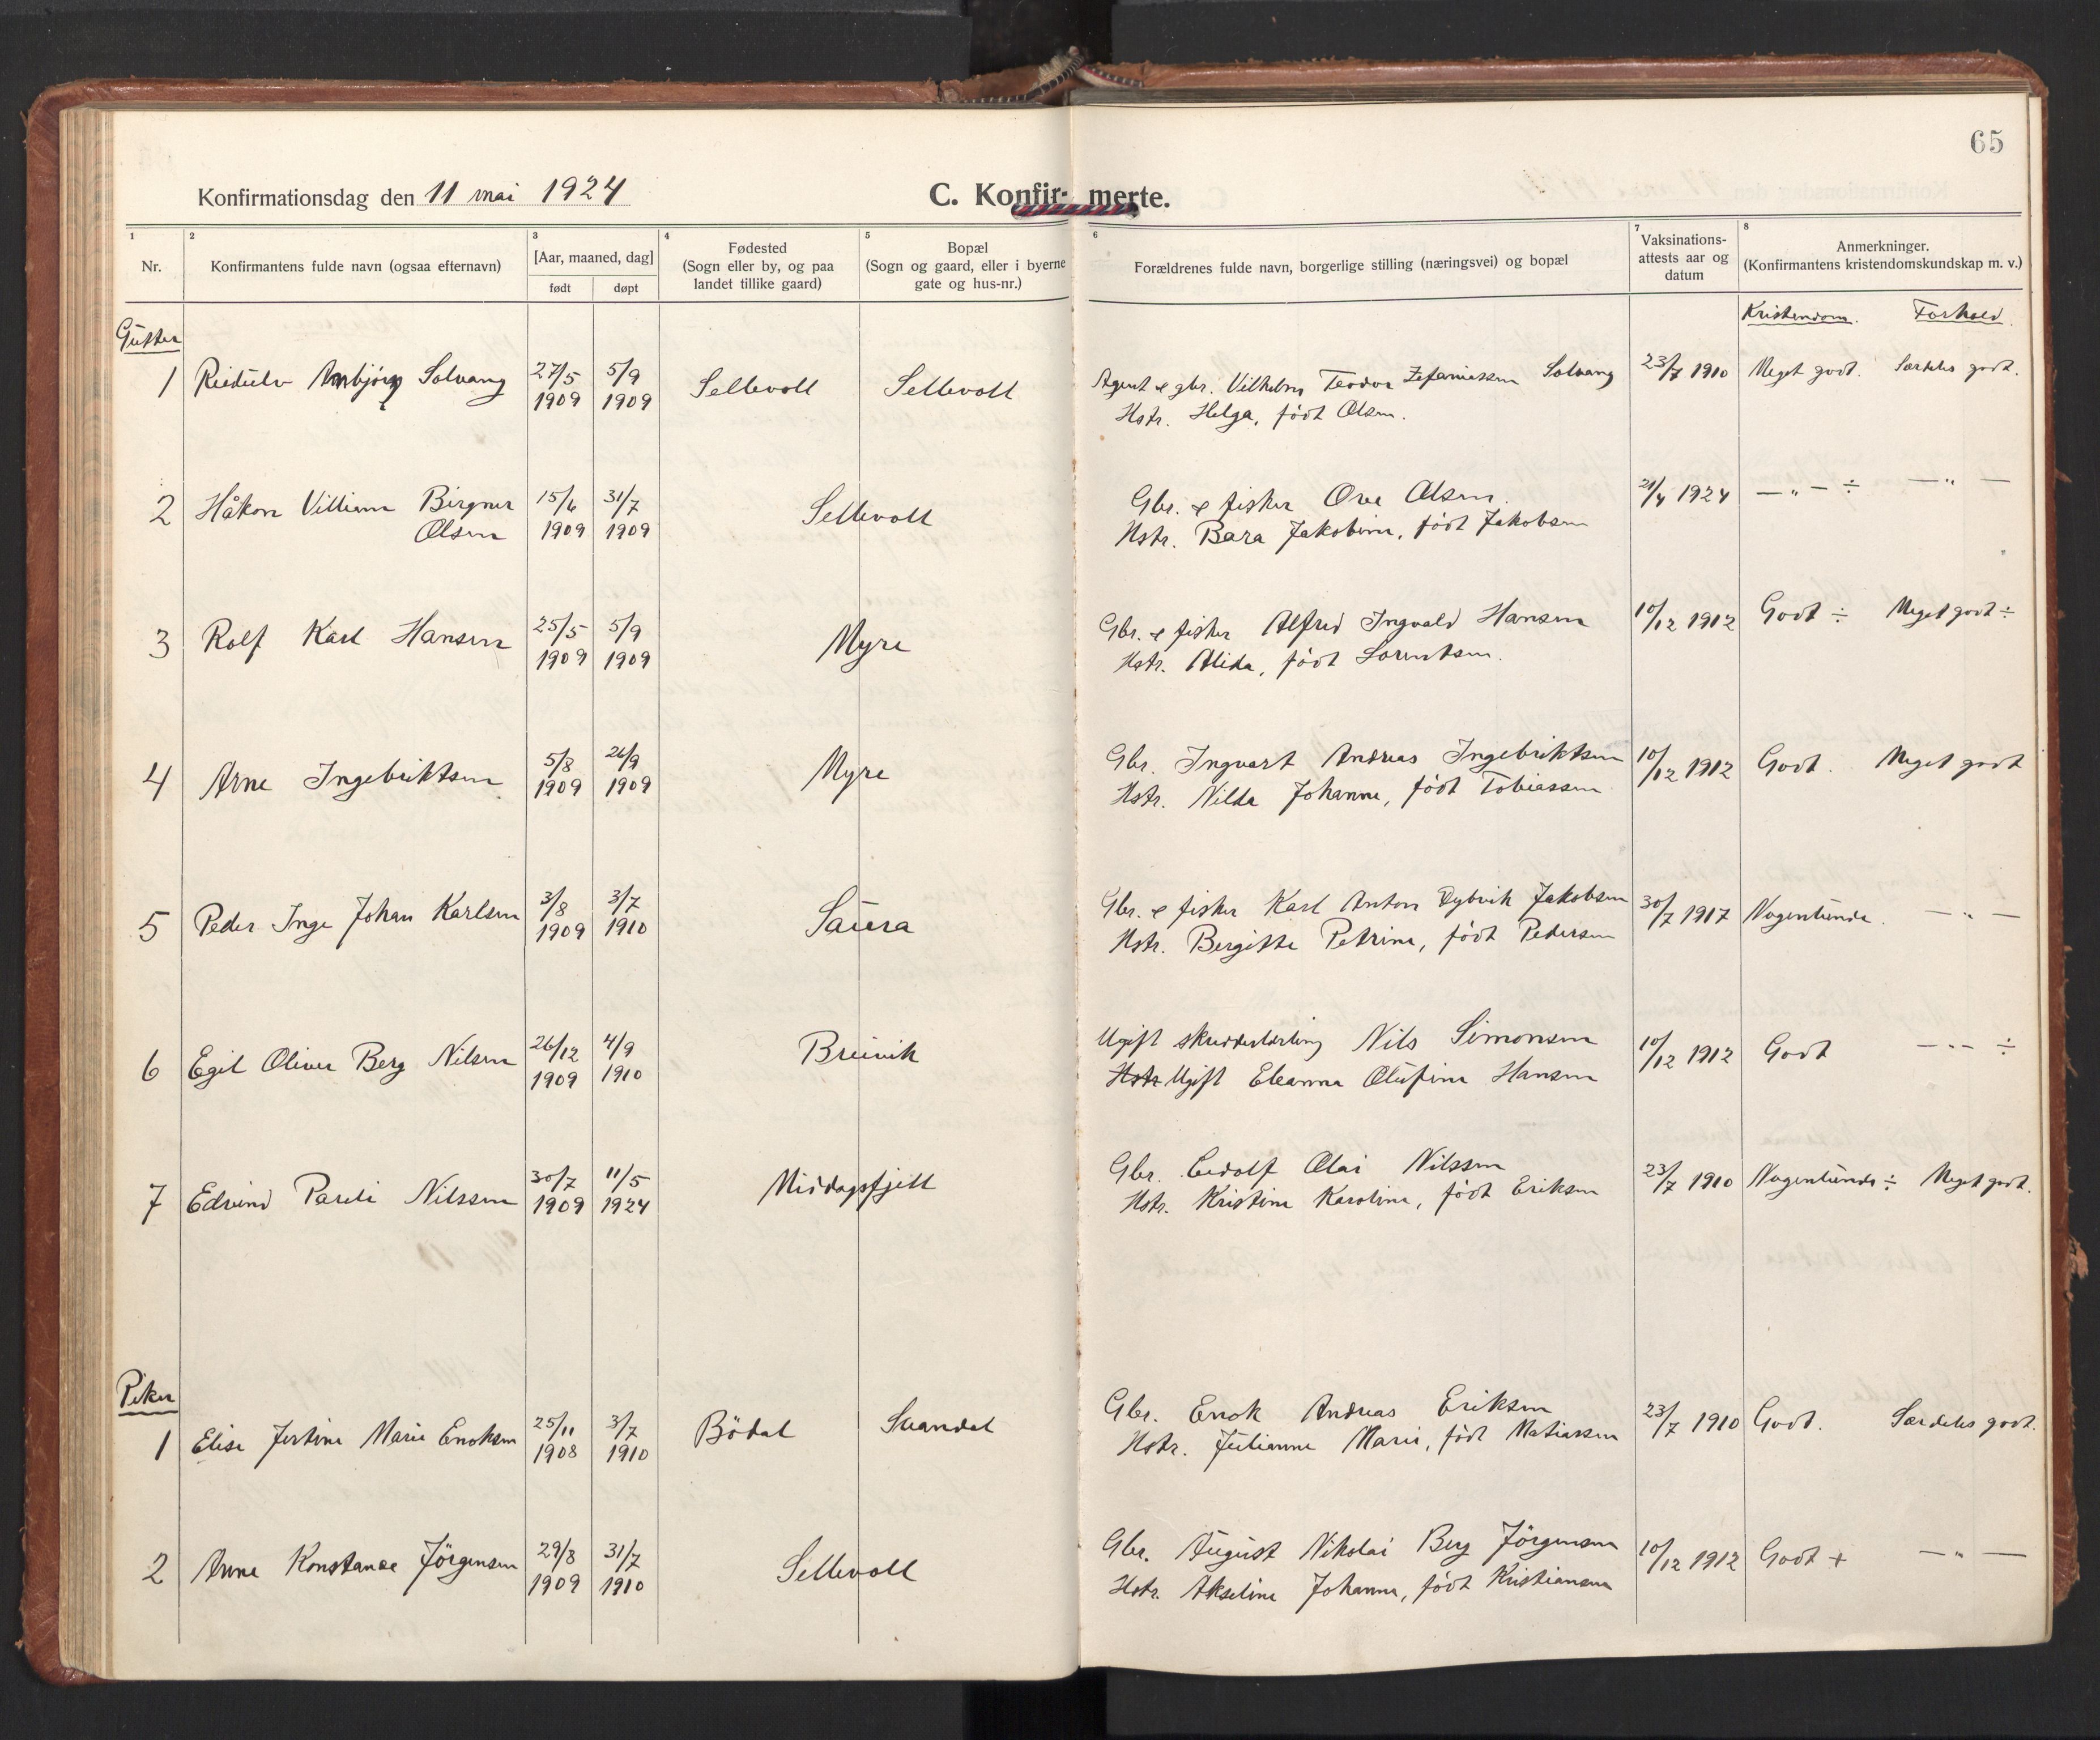 65
Konfirmationsdag den 11 mai 1924
C. Konfir- merte.
1 2 3 4 5 6 7 8
Nr. Konfirmantens fulde navn (ogsaa efternavn) [Aar, maaned, dag] født døpt
Fødested (Sogn eller by, og paa landet tillike gaard)
Bopæl (Sogn og gaard, eller i byerne gate og hus-nr.)
Forældrenes fulde navn, borgerlige stilling (næringsvei) og bopæl
Vaksinations-attests aar og datum
Anmerkninger. (Konfirmantens kristendomskundskap m. v.)
Kristendom. Forhold.
Gutter
1 Reidulv Arnbjörg Solvang 27/5 1909 5/9 1909 Sellevoll Sellevoll
Agent & gbr. Vilhelm Teodor Zefaniassen Solvang 23/7 1910 Meget godt. Særdeles godt.
Hstr. Helga, född Olsen.
2 Håkon Villiam Birgner Olsen 15/6 1909 31/7 1909 Sellevoll
Gbr. & fisker Ove Olsen. 21/4 1924 — „ — ÷ — „ —
Hstr. Bara Jakobine, född Jakobsen
3 Rolf Karl Hansen 25/5 1909 5/9 1909 Myre
Gbr. & fisker Alfred Ingvald Hansen 10/12 1912 Godt ÷ Meget godt ÷
Hstr. Alida, född Lorentsen.
4 Arne Ingebriktsen 5/8 1909 26/9 1909 Myre
Gbr. Ingvart Andreas Ingebriktsen 10/12 1912 Godt. Meget godt
Hstr. Nilda Johanne, född Tobiassen
5 Peder Inge Johan Karlsen 3/8 1909 3/7 1910 Saura
Gbr. & fisker Karl Anton Dybvik Jakobsen 30/7 1917 Nogenlunde. — „ —
Hstr. Bergitte Petrine, född Pedersen
6 Egil Oliver Berg Nilsen 26/12 1909 4/9 1910 Breivik
Ugift skredderlærling Nils Simonsen 10/12 1912 Godt — „ — ÷
Hstr Ugift Eleanna Olufine Hansen
7 Edvind Pareli Nilssen 30/7 1909 11/5 1924 Middagsfjell
Gbr. Edolf Olai Nilssen 23/7 1910 Nogenlunde ÷ Meget godt.
Hstr. Kristine Karoline, född Eriksen
Piker
1 Elise Jertine Marie Enoksen 25/11 1908 3/7 1910 Bödal Svandal
Gbr. Enok Andreas Eriksen 23/7 1910 Godt. Særdeles godt.
Hstr. Julianne Marie, född Matiassen
2 Anne Konstanse Jörgensen 29/8 1909 31/7 1910 Sellevoll
Gbr. August Nikolai Berg Jörgensen 10/12 1912 Godt + — „ —
Hstr. Akseline Johanne, född Kristiansen